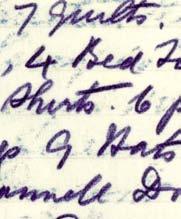 7 quilts.
, 4 Bed
Shirts. 6 p
ps 9 Hats
annell Dr